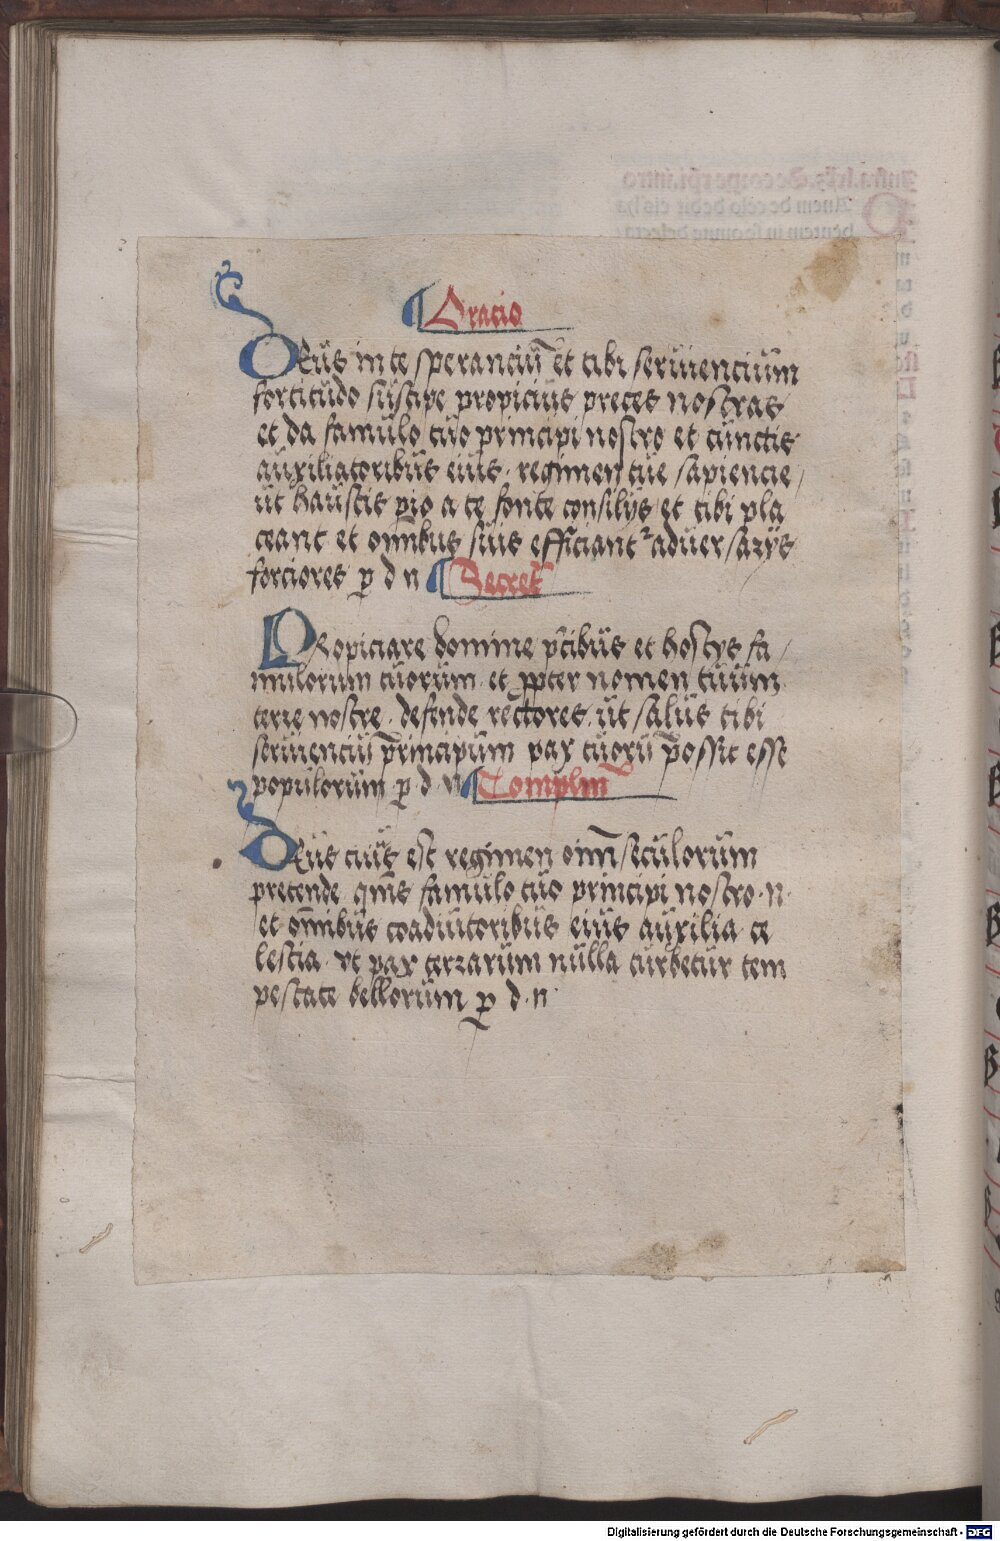 ¶ Oracio
DEus in te speranciū et tibi seruiencium
fortitudo suscipe propicius preces nostras
et da famulo tuo principi nostro et cunctis
auxiliatoribus eius · regimen tue sapiencie /
ut haustis pio a te fonte consilijs et tibi pla
ceant et om̄ibus suis efficiant᷑ aduersarijs
forciores ꝑ d n ¶ Secret̄
PRopiciare domine p̄cibus et hostijs fa /
mulorum tuorum · et ꝓpter nomen tuum
terre nostre · defende rectores · ut salus tibi
seruienciū principum pax tuorū possit esse
populorum ꝑ · d · n ¶ Complm̄
DEus cuius est regimen oīm seculorum
pretende qm̄s famulo tuo principi nostro · n ·
et om̄ibus coadiutoribus eius auxilia · ce
lestia · vt pax terrarum nulla turbetur tem
pestate bellorum ꝑ d · n ·
Digitalisierung gefördert durch die Deutsche Forschungsgemeinschaft - DFG